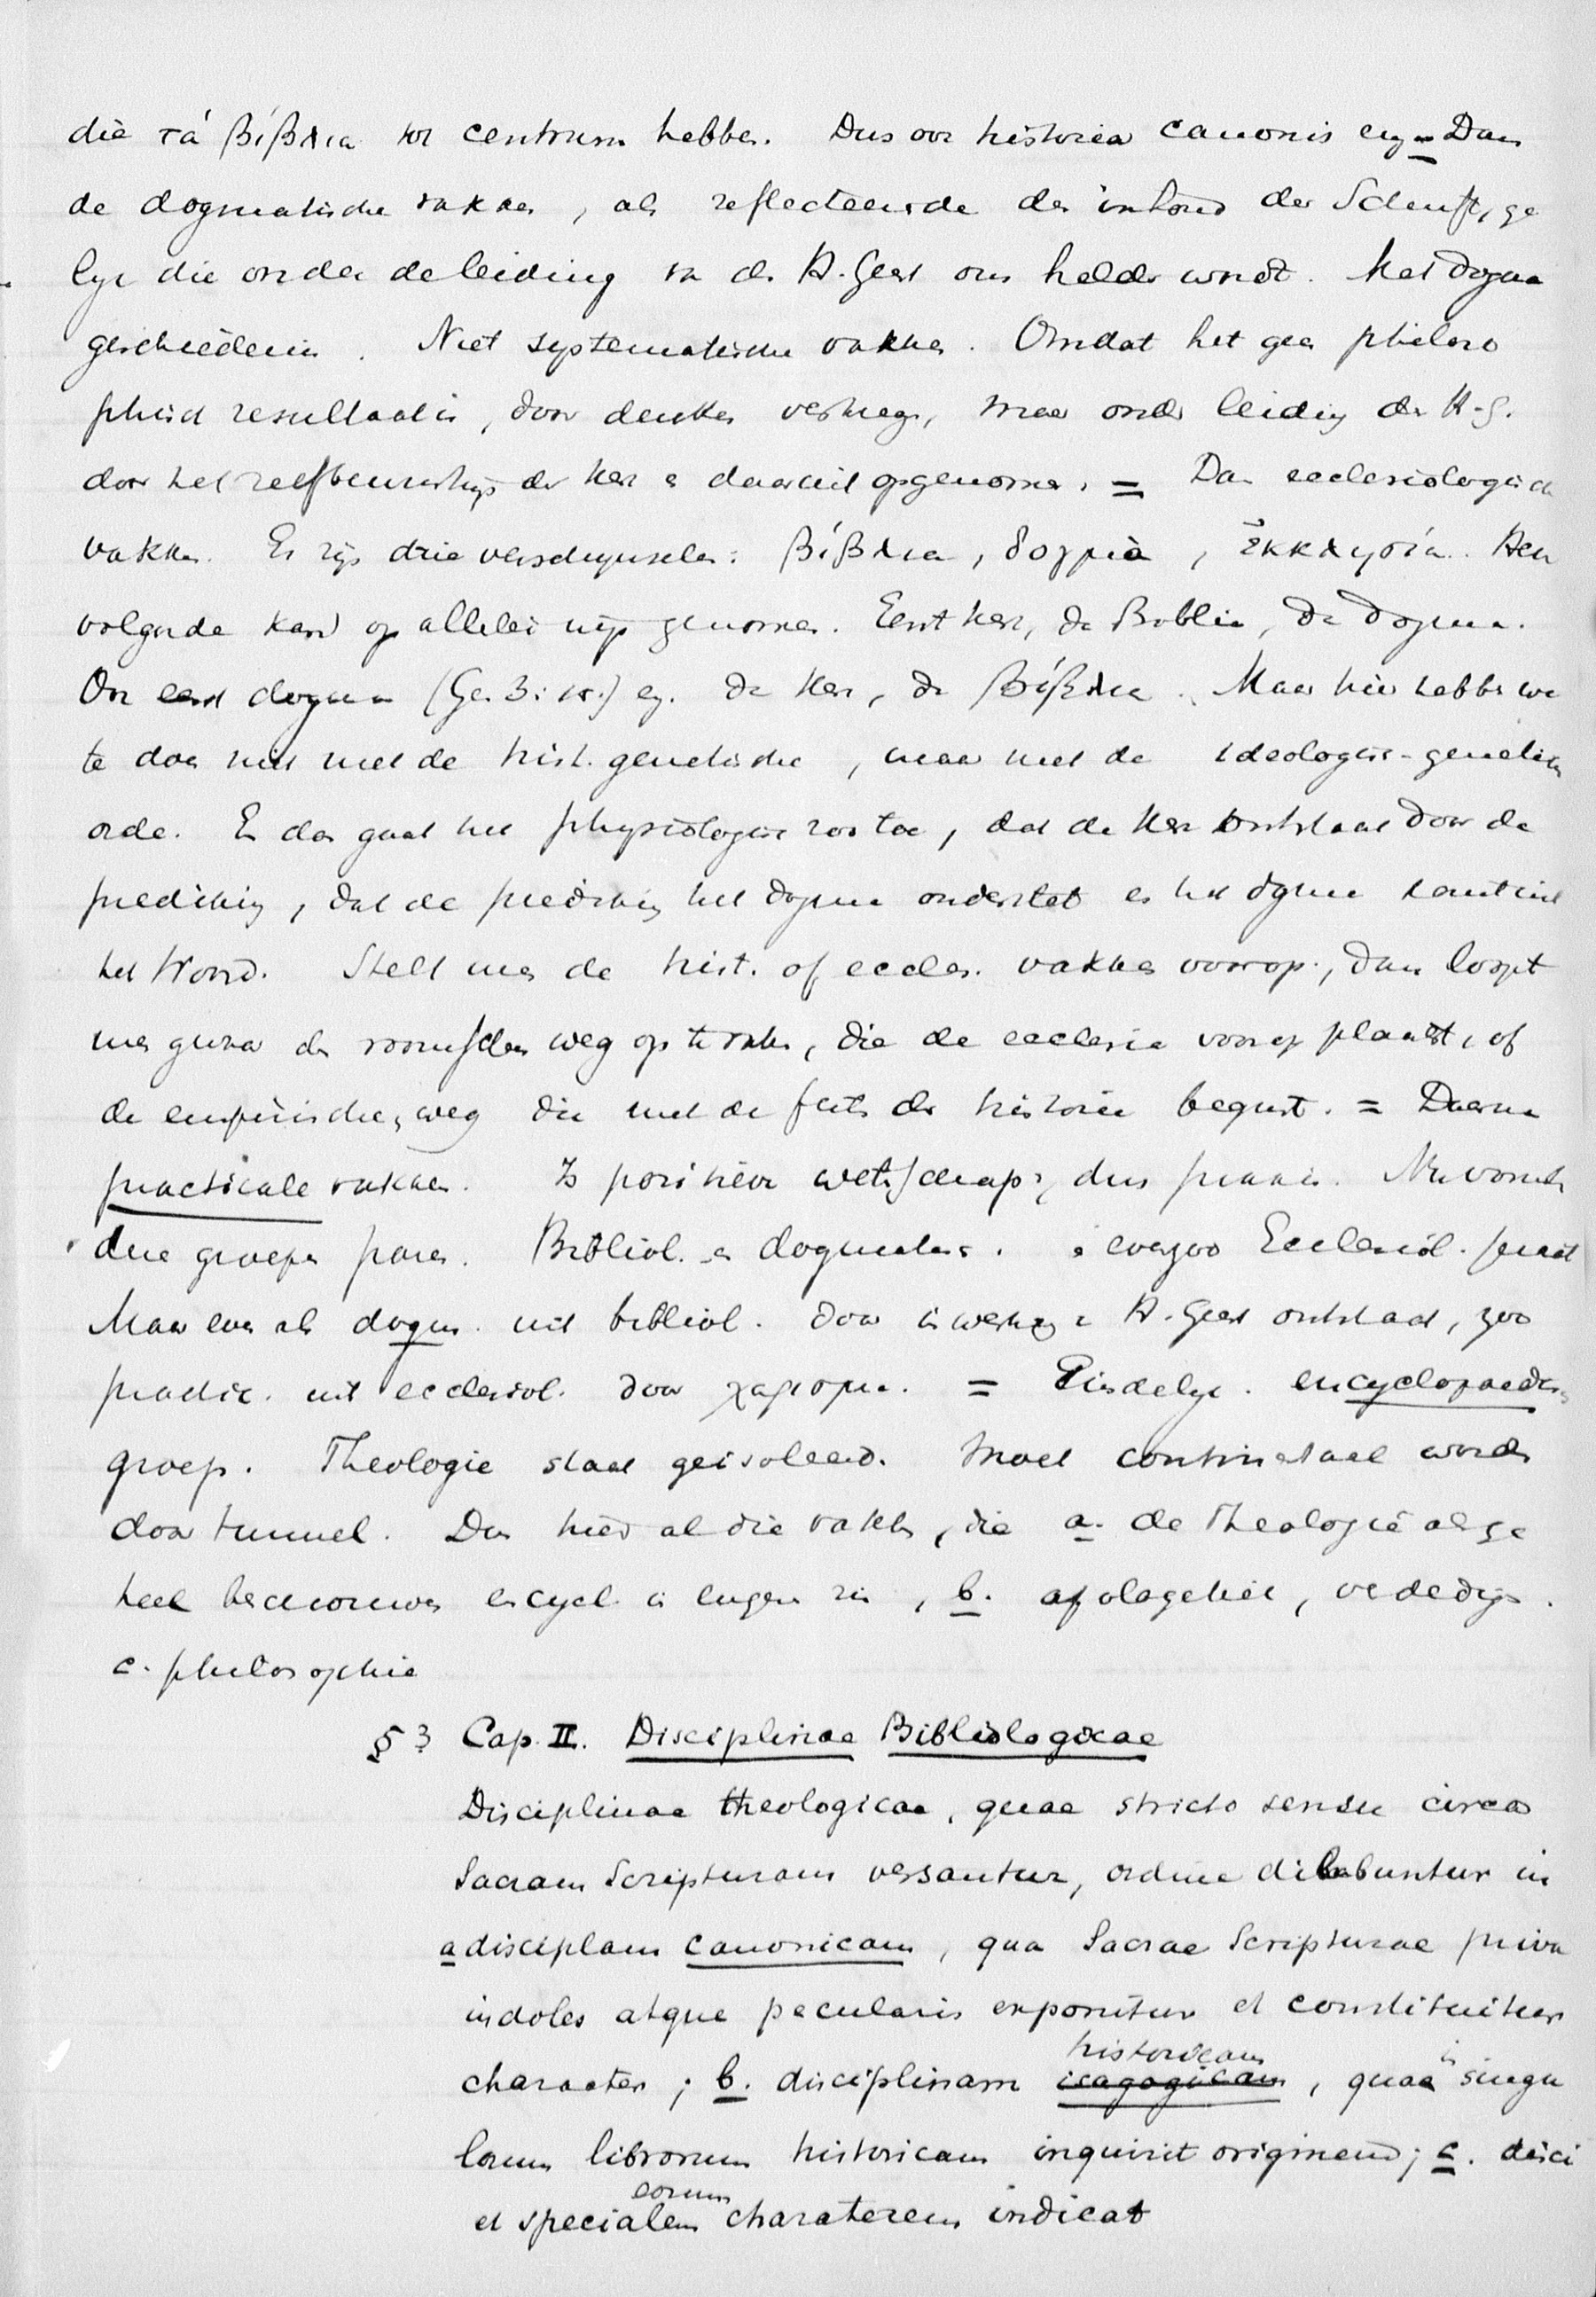 die τά βίβλια tot centrum hebben. Dus ook historia canonis enz = Dan
de dogmatische vakken, als reflecteerende den inhoud der Schrift, ge
lijk die onder de leiding van den H. Geest ons helder wordt. Met dogma
geschiedenis. Niet systematische vakken. Omdat het geen philoso
phisch resultaat is, door denken verkregen, maar onder leiding der H.G.
door het zelfbewustzijn der kerk en daaruit opgenomen. = Dan ecclesiologische
vakken. Er zijn drie verschijnselen: βίβλια, δογμα, ἐκκλησία. Haar
volgorde kan op allerlei wijs genomen. Eerst kerk, dan Biblia, dan dogma.
Ook eerst dogma (Gen 3:15.) en. dan kerk, dan βίβλια. Maar hier hebben we
te doen niet met de hist. genetische, maar met de ideologisch-genetische
orde. En dan gaat het physiologisch zoo toe, dat de kerk ontstaat door de
prediking, dat de prediking het dogma onderstelt en het dogma komt uit
het Woord. Stelt men de hist. of eccles. vakken voorop, dan loopt
men gevaar den roomschen weg op te raken, die de ecclesia voorop plaatst, of
de empirische weg die met de feiten der historie begint. = Daarna
practicale vakken. Is positieve wetschap, dus praxis. Nu vormen
die groepen paren. Bibliol. en dogmatol. en evenzoo Ecclesiol. pract
Maar even als dogm. uit bibliol. door inwerking v H. Geest ontstaat, zoo
practic. uit ecclesiol. door χαρισμα. = Eindelijk. encyclopaedische
groep. Theologie staat geisoleerd. Moet continentaal worden
door tunnel. Dus hier al die vakken, die a. de Theologie als ge
heel beschouwen encycl. in engen zin, b. apologetiek, verdedigen.
c. philosophie
§ 3 Cap. II. Disciplinae Bibliologicae
Disciplinae theologicae, quae stricto sensu circa
Sacram Scripturam versantur, ordine dilabuntur in
a disciplam canonicam, qua Sacrae Scripturae priva
indoles atque pecularis exponitur et constituitur
historicam
character; b. disciplinam isagogicam, quae in singu
lorum librorum historicam inquirit originem; c. disci
eorum
et specialem charaterem indicat